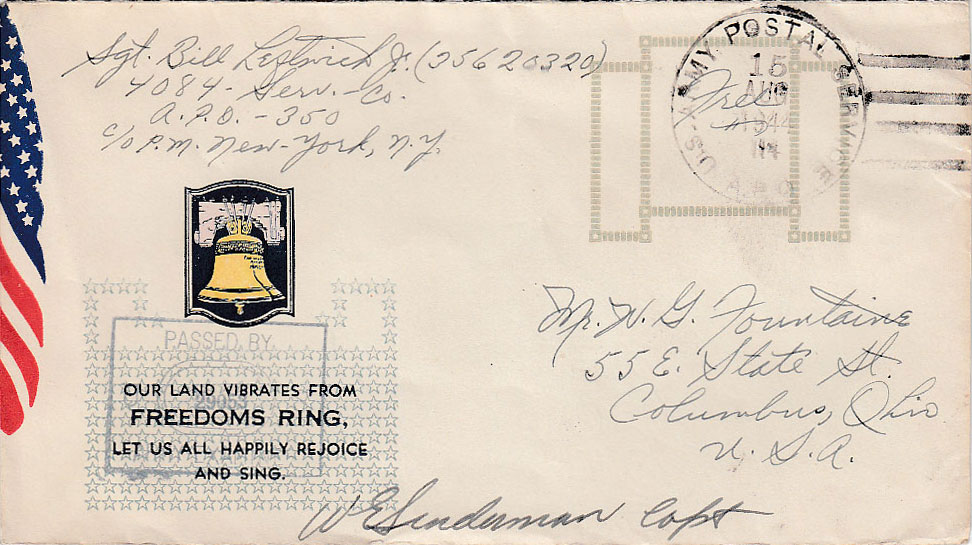 Sgt. Bill Leftwich Jr. (35620320)
4084 - Serv. - Co.
A.P.O. - 350
c/o P.M. New-York, N.Y.
U.S. ARMY POSTAL SERVICE
A.P.O.
15
AUG
1944
Free
PASSED BY
29053
OUR LAND VIBRATES FROM
FREEDOMS RING,
LET US ALL HAPPILY REJOICE
AND SING.
Mr. W. G. Fountaine
55 E. State St.
Columbus, Ohio
U.S.A.
W E Linderman Capt